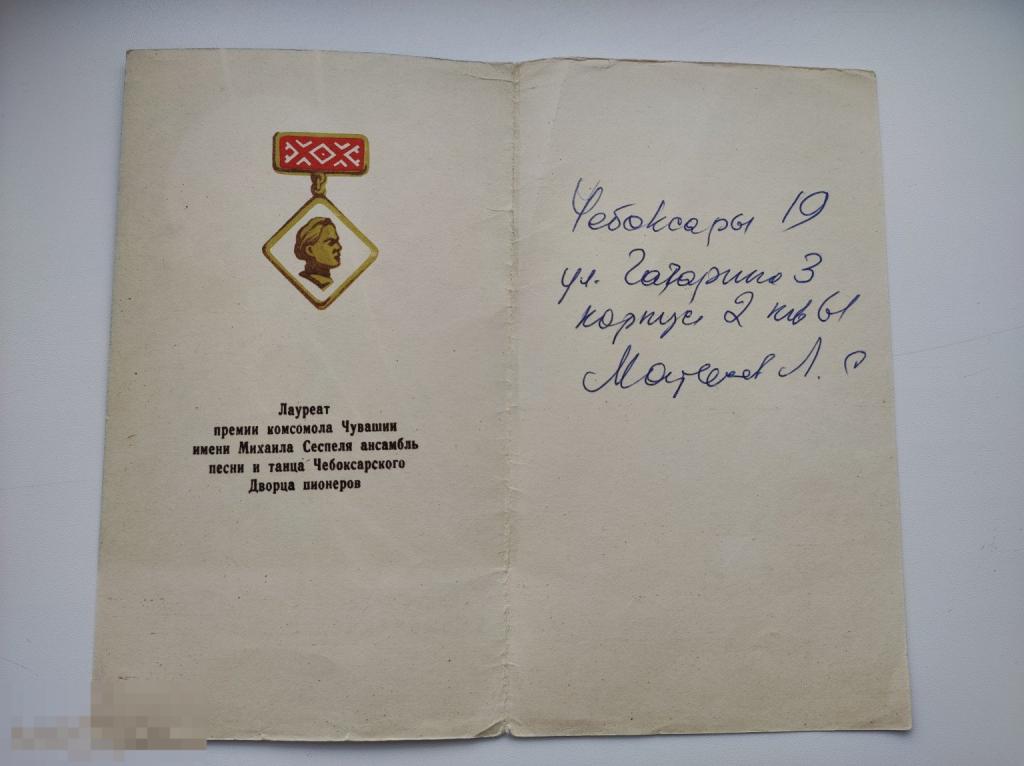 Лауреат
премии комсомола Чувашии
имени Михаила Сеспеля ансамбль
песни и танца Чебоксарского
Дворца пионеров
Чебоксары 19
ул. Гагарина 3
корпус 2 кв 61
Л.